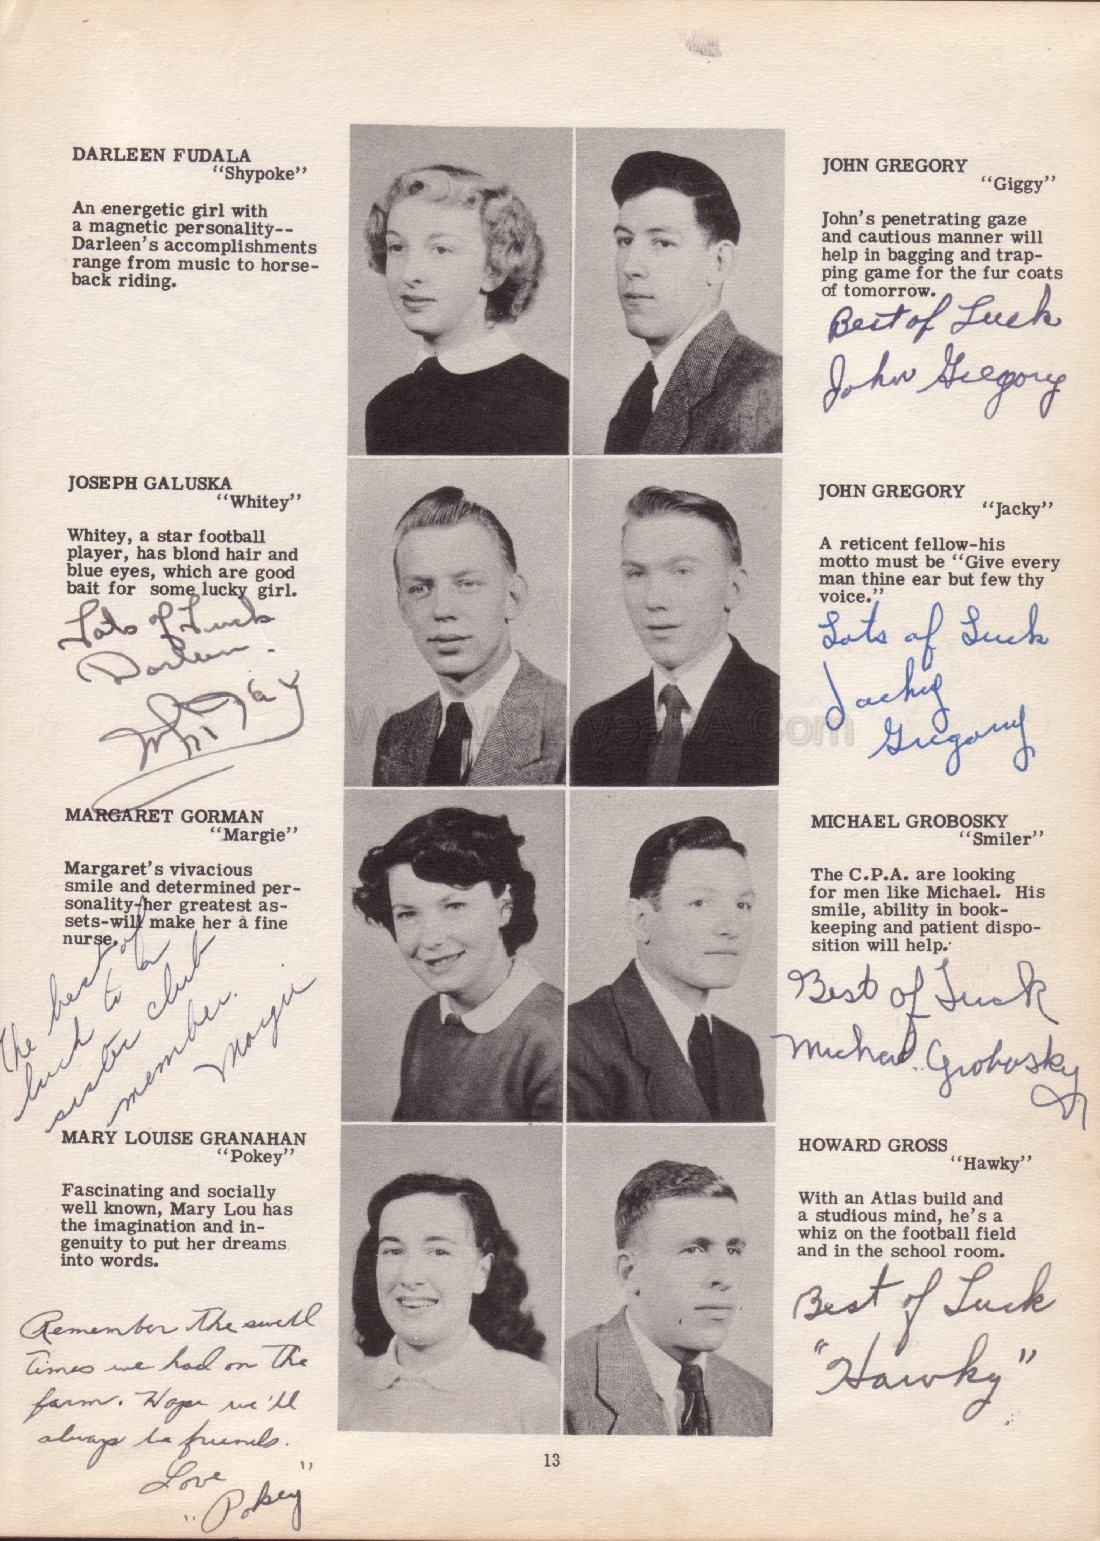 DARLEEN FUDALA
"Shypoke"
An energetic girl with
a magnetic personality--
Darleen's accomplishments
range from music to horse-
back riding.
JOHN GREGORY
"Giggy"
John's penetrating gaze
and cautious manner will
help in bagging and trap-
ping game for the fur coats
of tomorrow.
Best of Luck
John Gregory
JOSEPH GALUSKA
"Whitey"
Whitey, a star football
player, has blond hair and
blue eyes, which are good
bait for some lucky girl.
Lots of Luck
Darleen
Whitey
JOHN GREGORY
"Jacky"
A reticent fellow-his
motto must be "Give every
man thine ear but few thy
voice."
Lots of Luck
Jacky
Gregory
MARGARET GORMAN
"Margie"
Margaret's vivacious
smile and determined per-
sonality-her greatest as-
sets-will make her a fine
nurse.
The best of
luck to a
sister club
member.
Margie
MICHAEL GROBOSKY
"Smiler"
The C.P.A. are looking
for men like Michael. His
smile, ability in book-
keeping and patient dispo-
sition will help.
Best of Luck
Michael Grobosky
MARY LOUISE GRANAHAN
"Pokey"
Fascinating and socially
well known, Mary Lou has
the imagination and in-
genuity to put her dreams
into words.
Remember the swell
times we had on the
farm. Hope we'll
always be friends.
Love
"Pokey"
HOWARD GROSS
"Hawky"
With an Atlas build and
a studious mind, he's a
whiz on the football field
and in the school room.
Best of Luck
"Hawky"
13